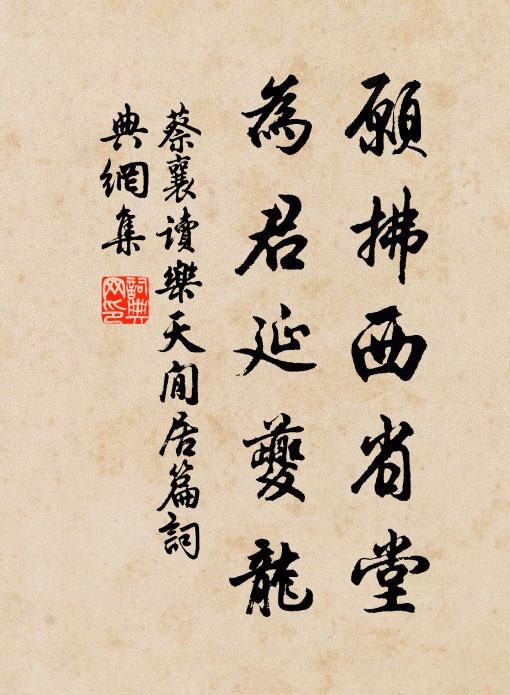 願拂西省堂
為君延夔龍
蔡襄讀樂天閒居篇詞
典網集
詞典
网印